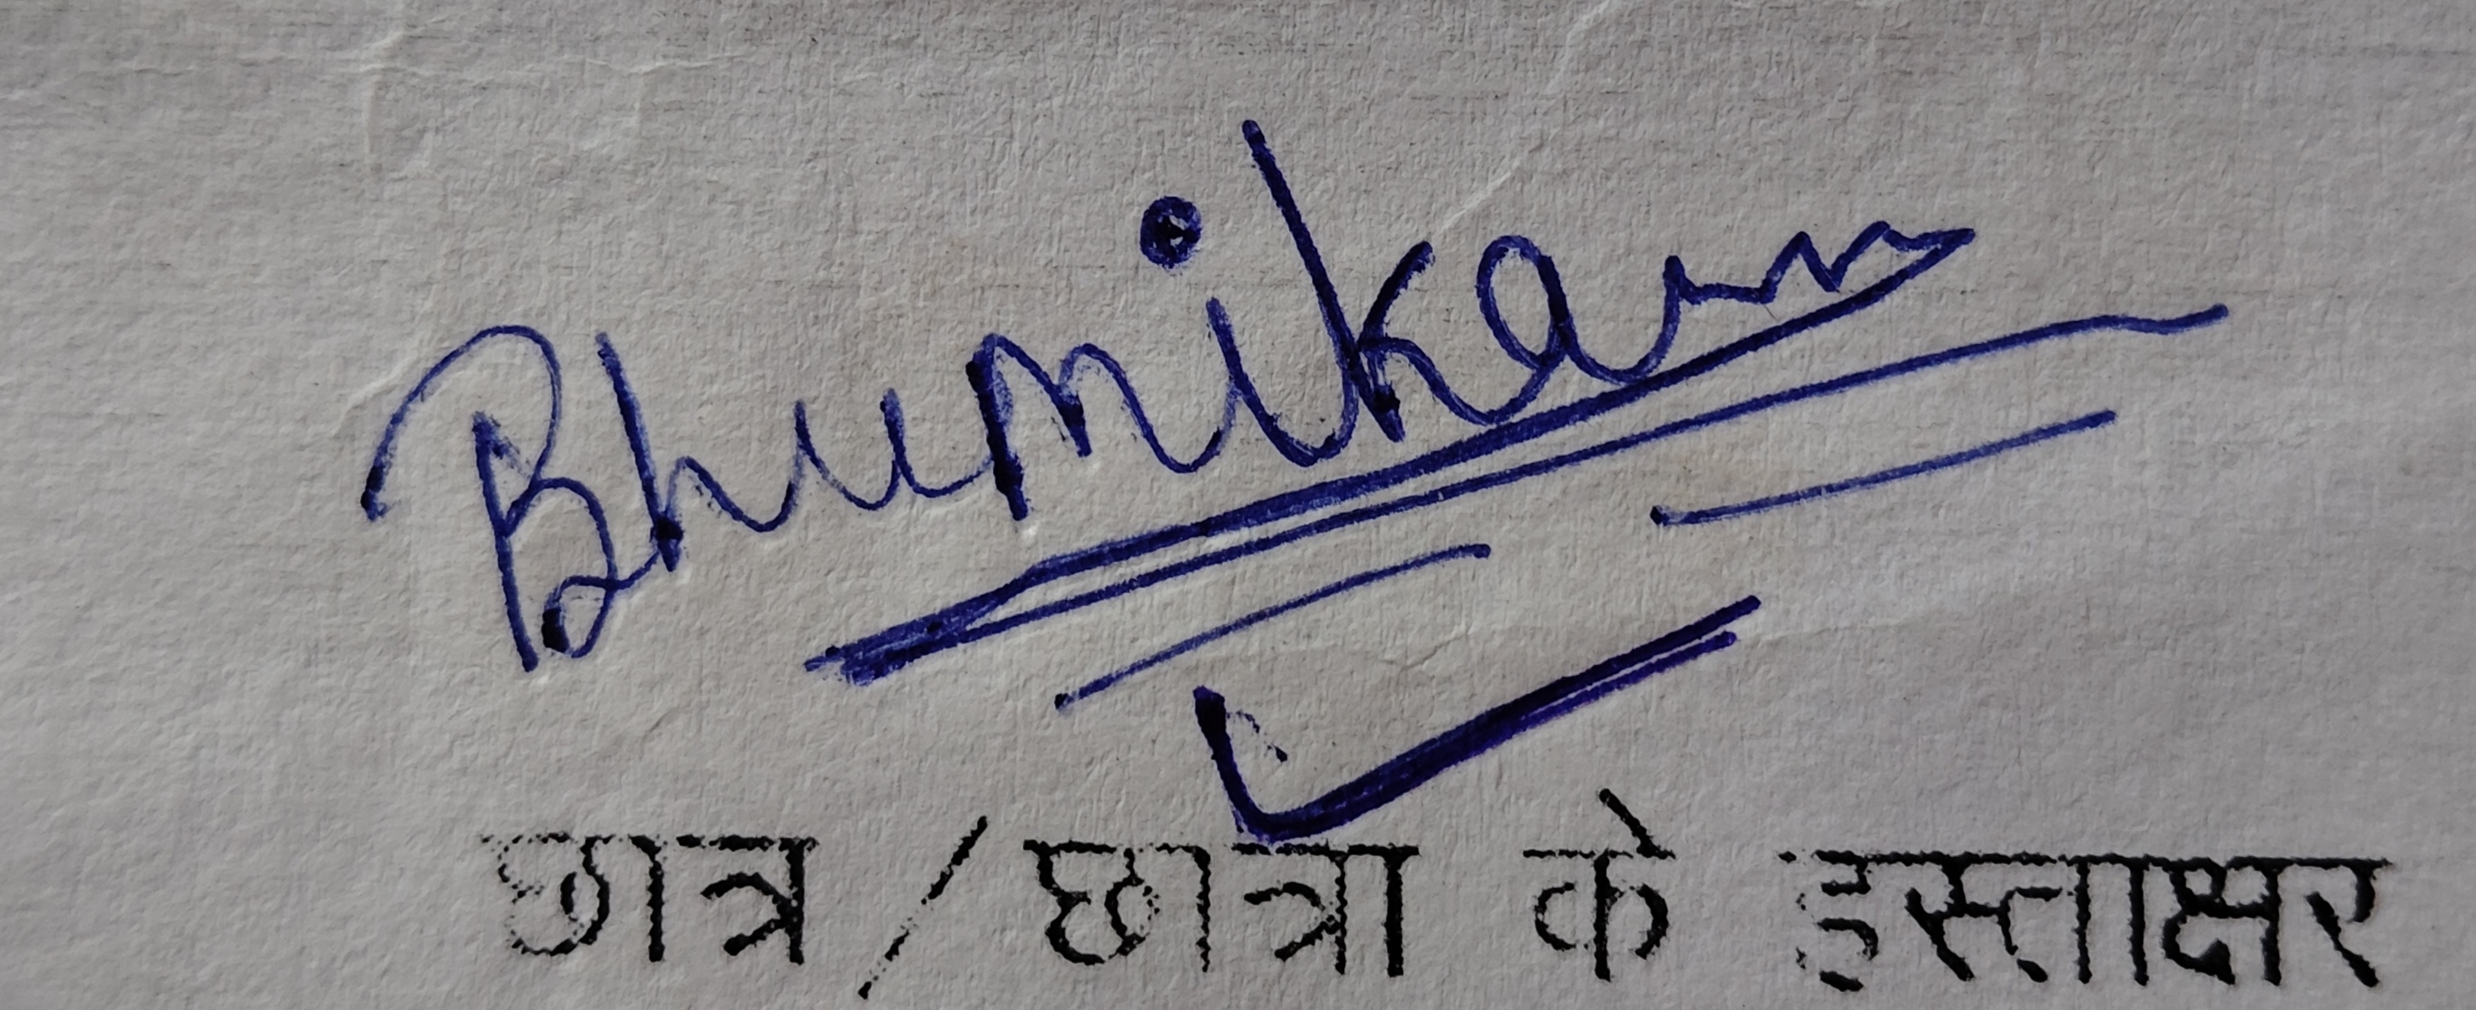 Bhumika
छात्र / छात्रा के हस्ताक्षर